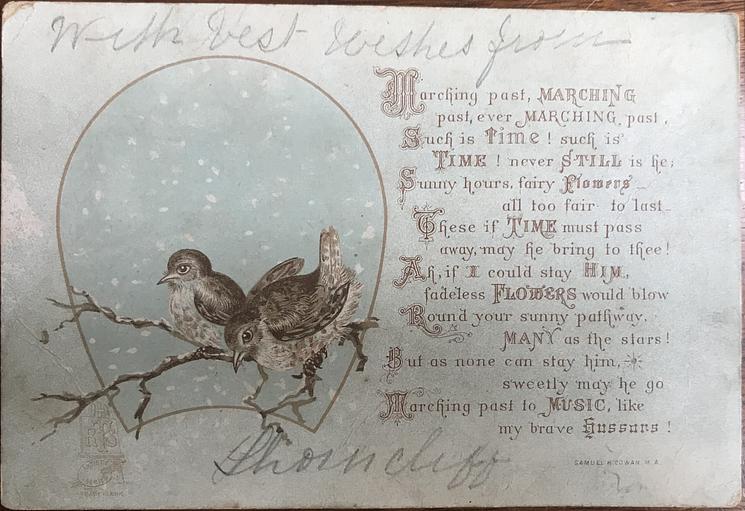 With best wishes from
Marching past, MARCHING
past, ever MARCHING, past,
Such is Time! such is
TIME! never STILL is he;
Sunny hours, fairy Flowers
all too fair to last
These if TIME must pass
away, may he bring to thee!
Ah, if I could stay HIM,
fadeless FLOWERS would blow
Round your sunny pathway,
MANY as the stars!
But as none can stay him,
sweetly may he go
Marching past to MUSIC, like
my brave Hussars!
SAMUEL K COWAN, M.A.
Shorncliff